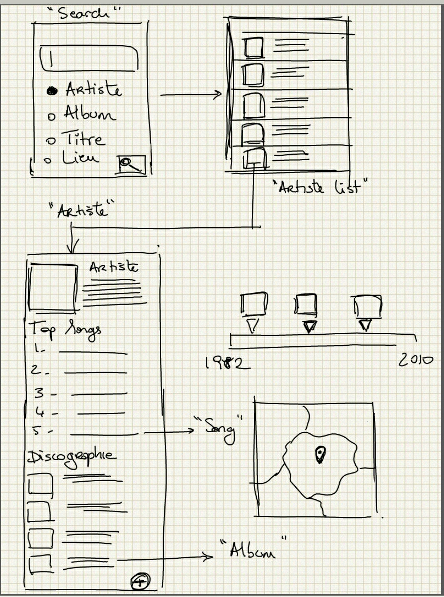 "Search"
Artiste
Album
Titre
Lieu
"Artiste list"
"Artiste"
Artiste
Top Songs
1-
2-
3-
4-
5-
"Song"
Discographie
"Album"
1982
2010